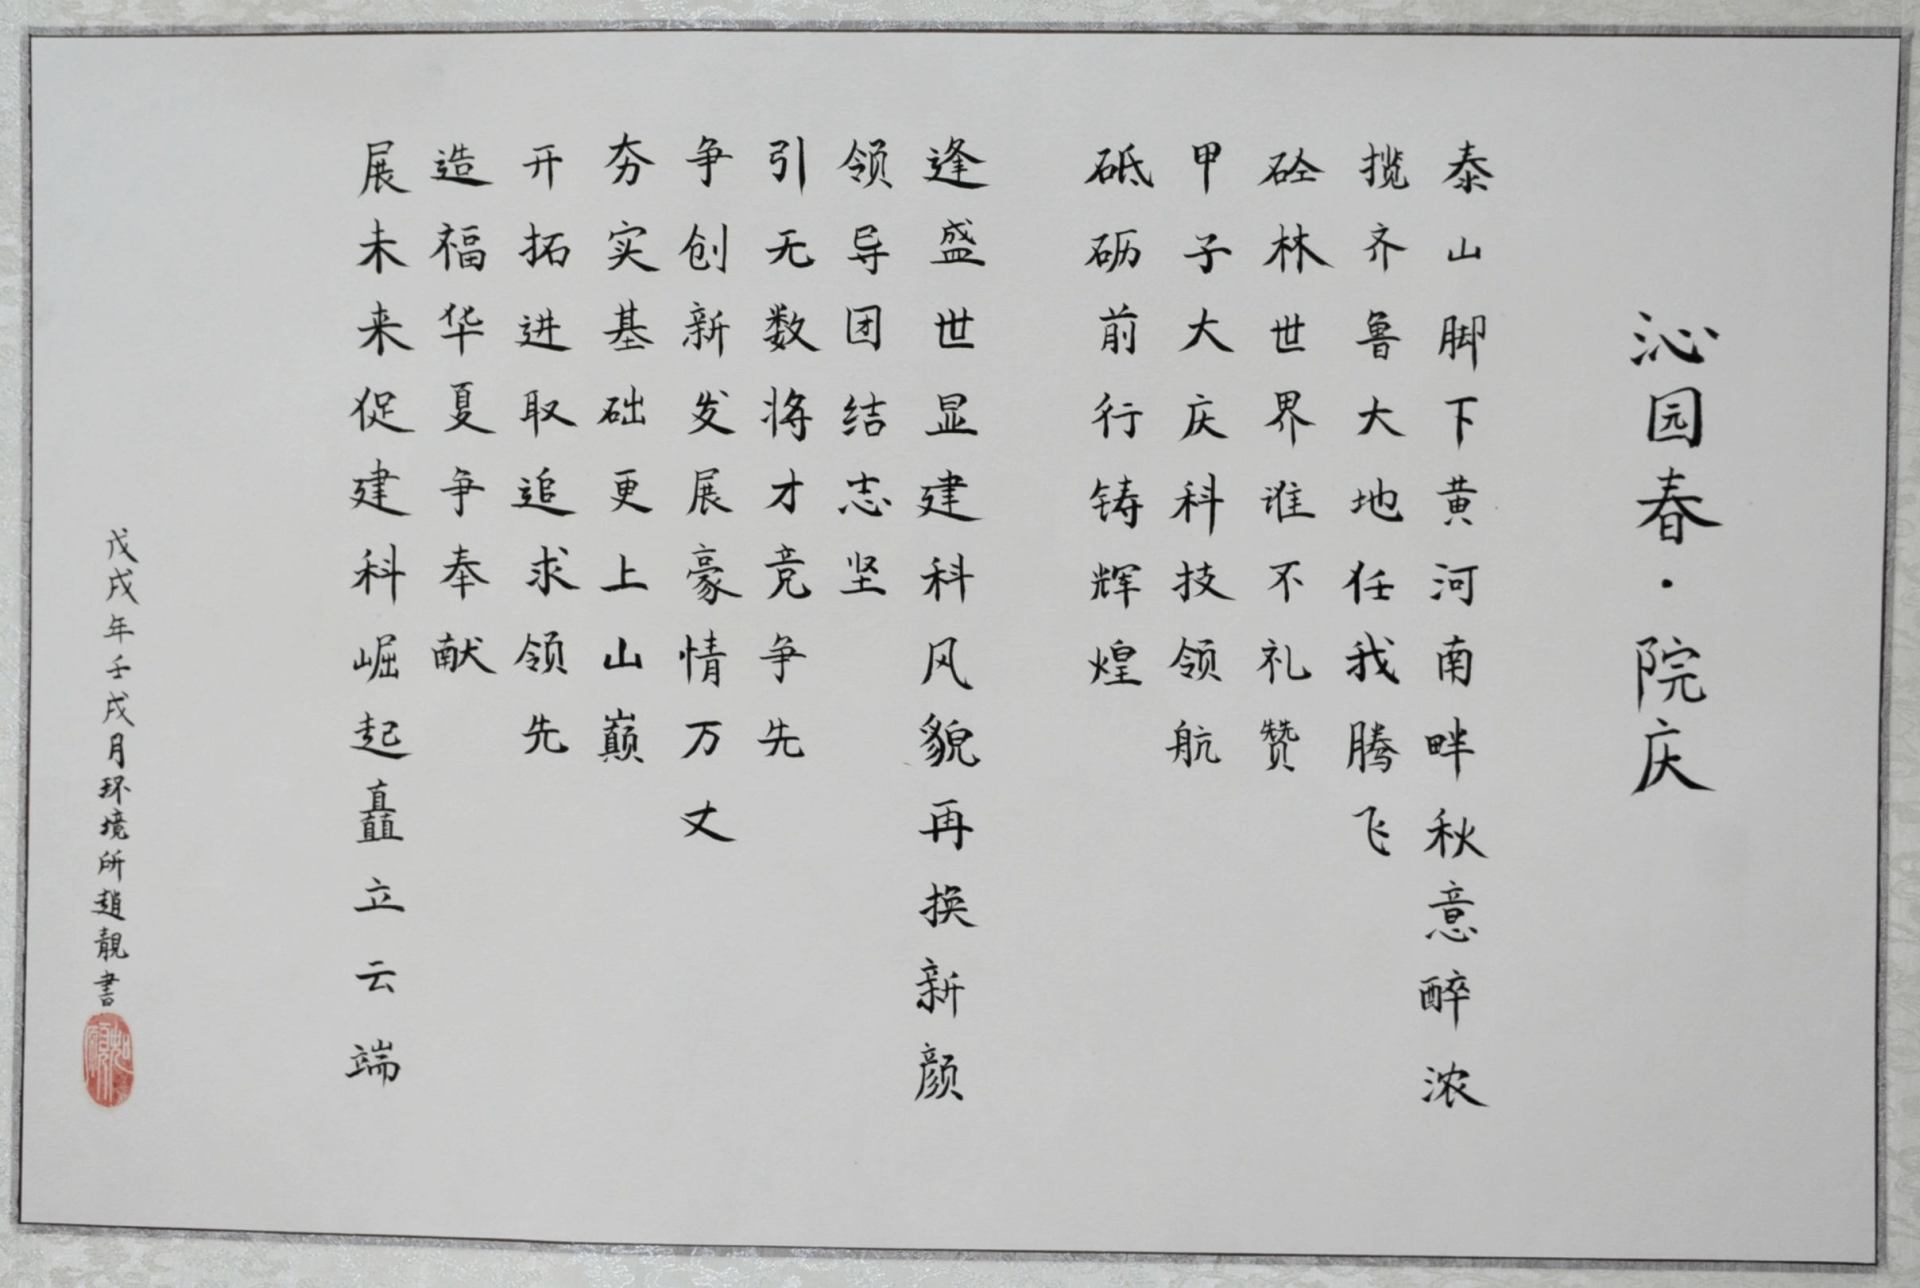 沁园春·院庆
泰山脚下黄河南畔秋意醉浓
揽齐鲁大地任我腾飞
砼林世界谁不礼赞
甲子大庆科技领航
砥砺前行铸辉煌
逢盛世显建科风貌再换新颜
领导团结志坚
引无数将才竞争先
争创新发展豪情万丈
夯实基础更上山巅
开拓进取追求领先
造福华夏争奉献
展未来促建科崛起矗立云端
戊戌年壬戌月环境所趙靚書